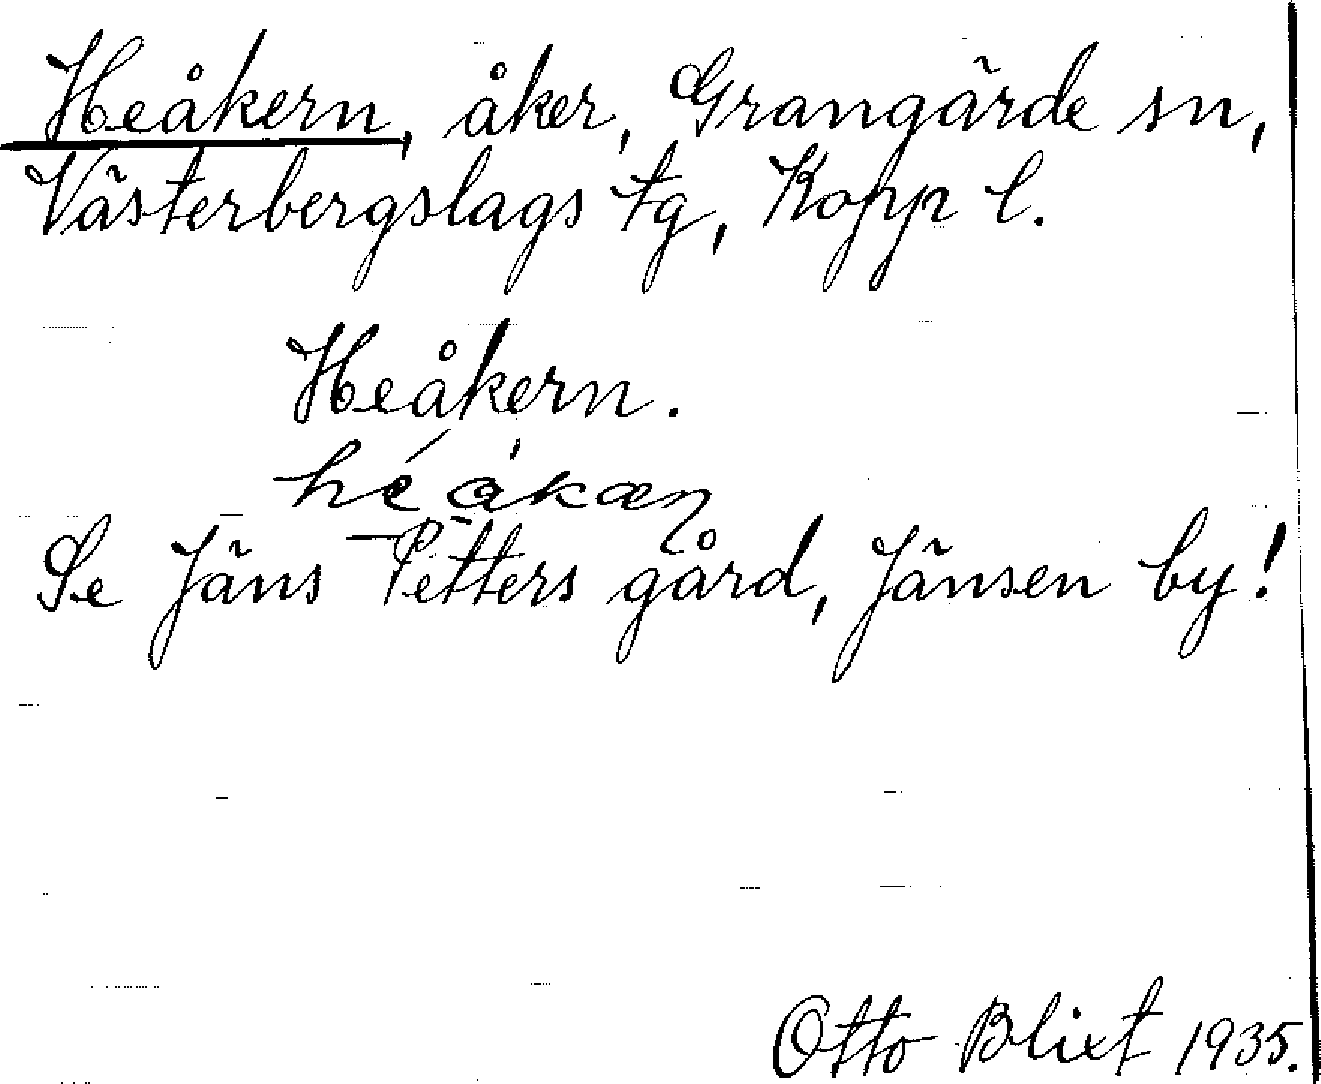 Heåkern, åker, Grangärde sn,
Västerbergslags tg, Kopp l.
Heåkern.
Se Jäns Petters gård, Jänsen by!
Otto Blixt 1935.